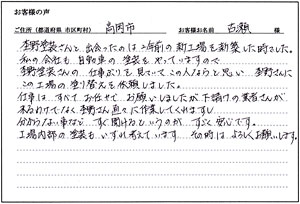 お客様の声
ご住所(都道府県 市区町村) 高岡市 お客様お名前 古瀬 様
李野塗装さんと出会ったのは2年前の新工場を新築した時でした。
私の会社も自動車の塗装をやっていますので
李野塗装さんの仕事ぶりを見ていてこの人ならと思い李野さんに
この工場の塗り替えを依頼しました。
仕事はすべてお任せでお願いしましたが下請けの業者さんが
来るわけでなく李野さん直々に作業してくれますし
分からない事などすぐ聞けるというのがすごく安心です。
工場内部の塗装もいずれ考えています その時はよろしくお願いします。